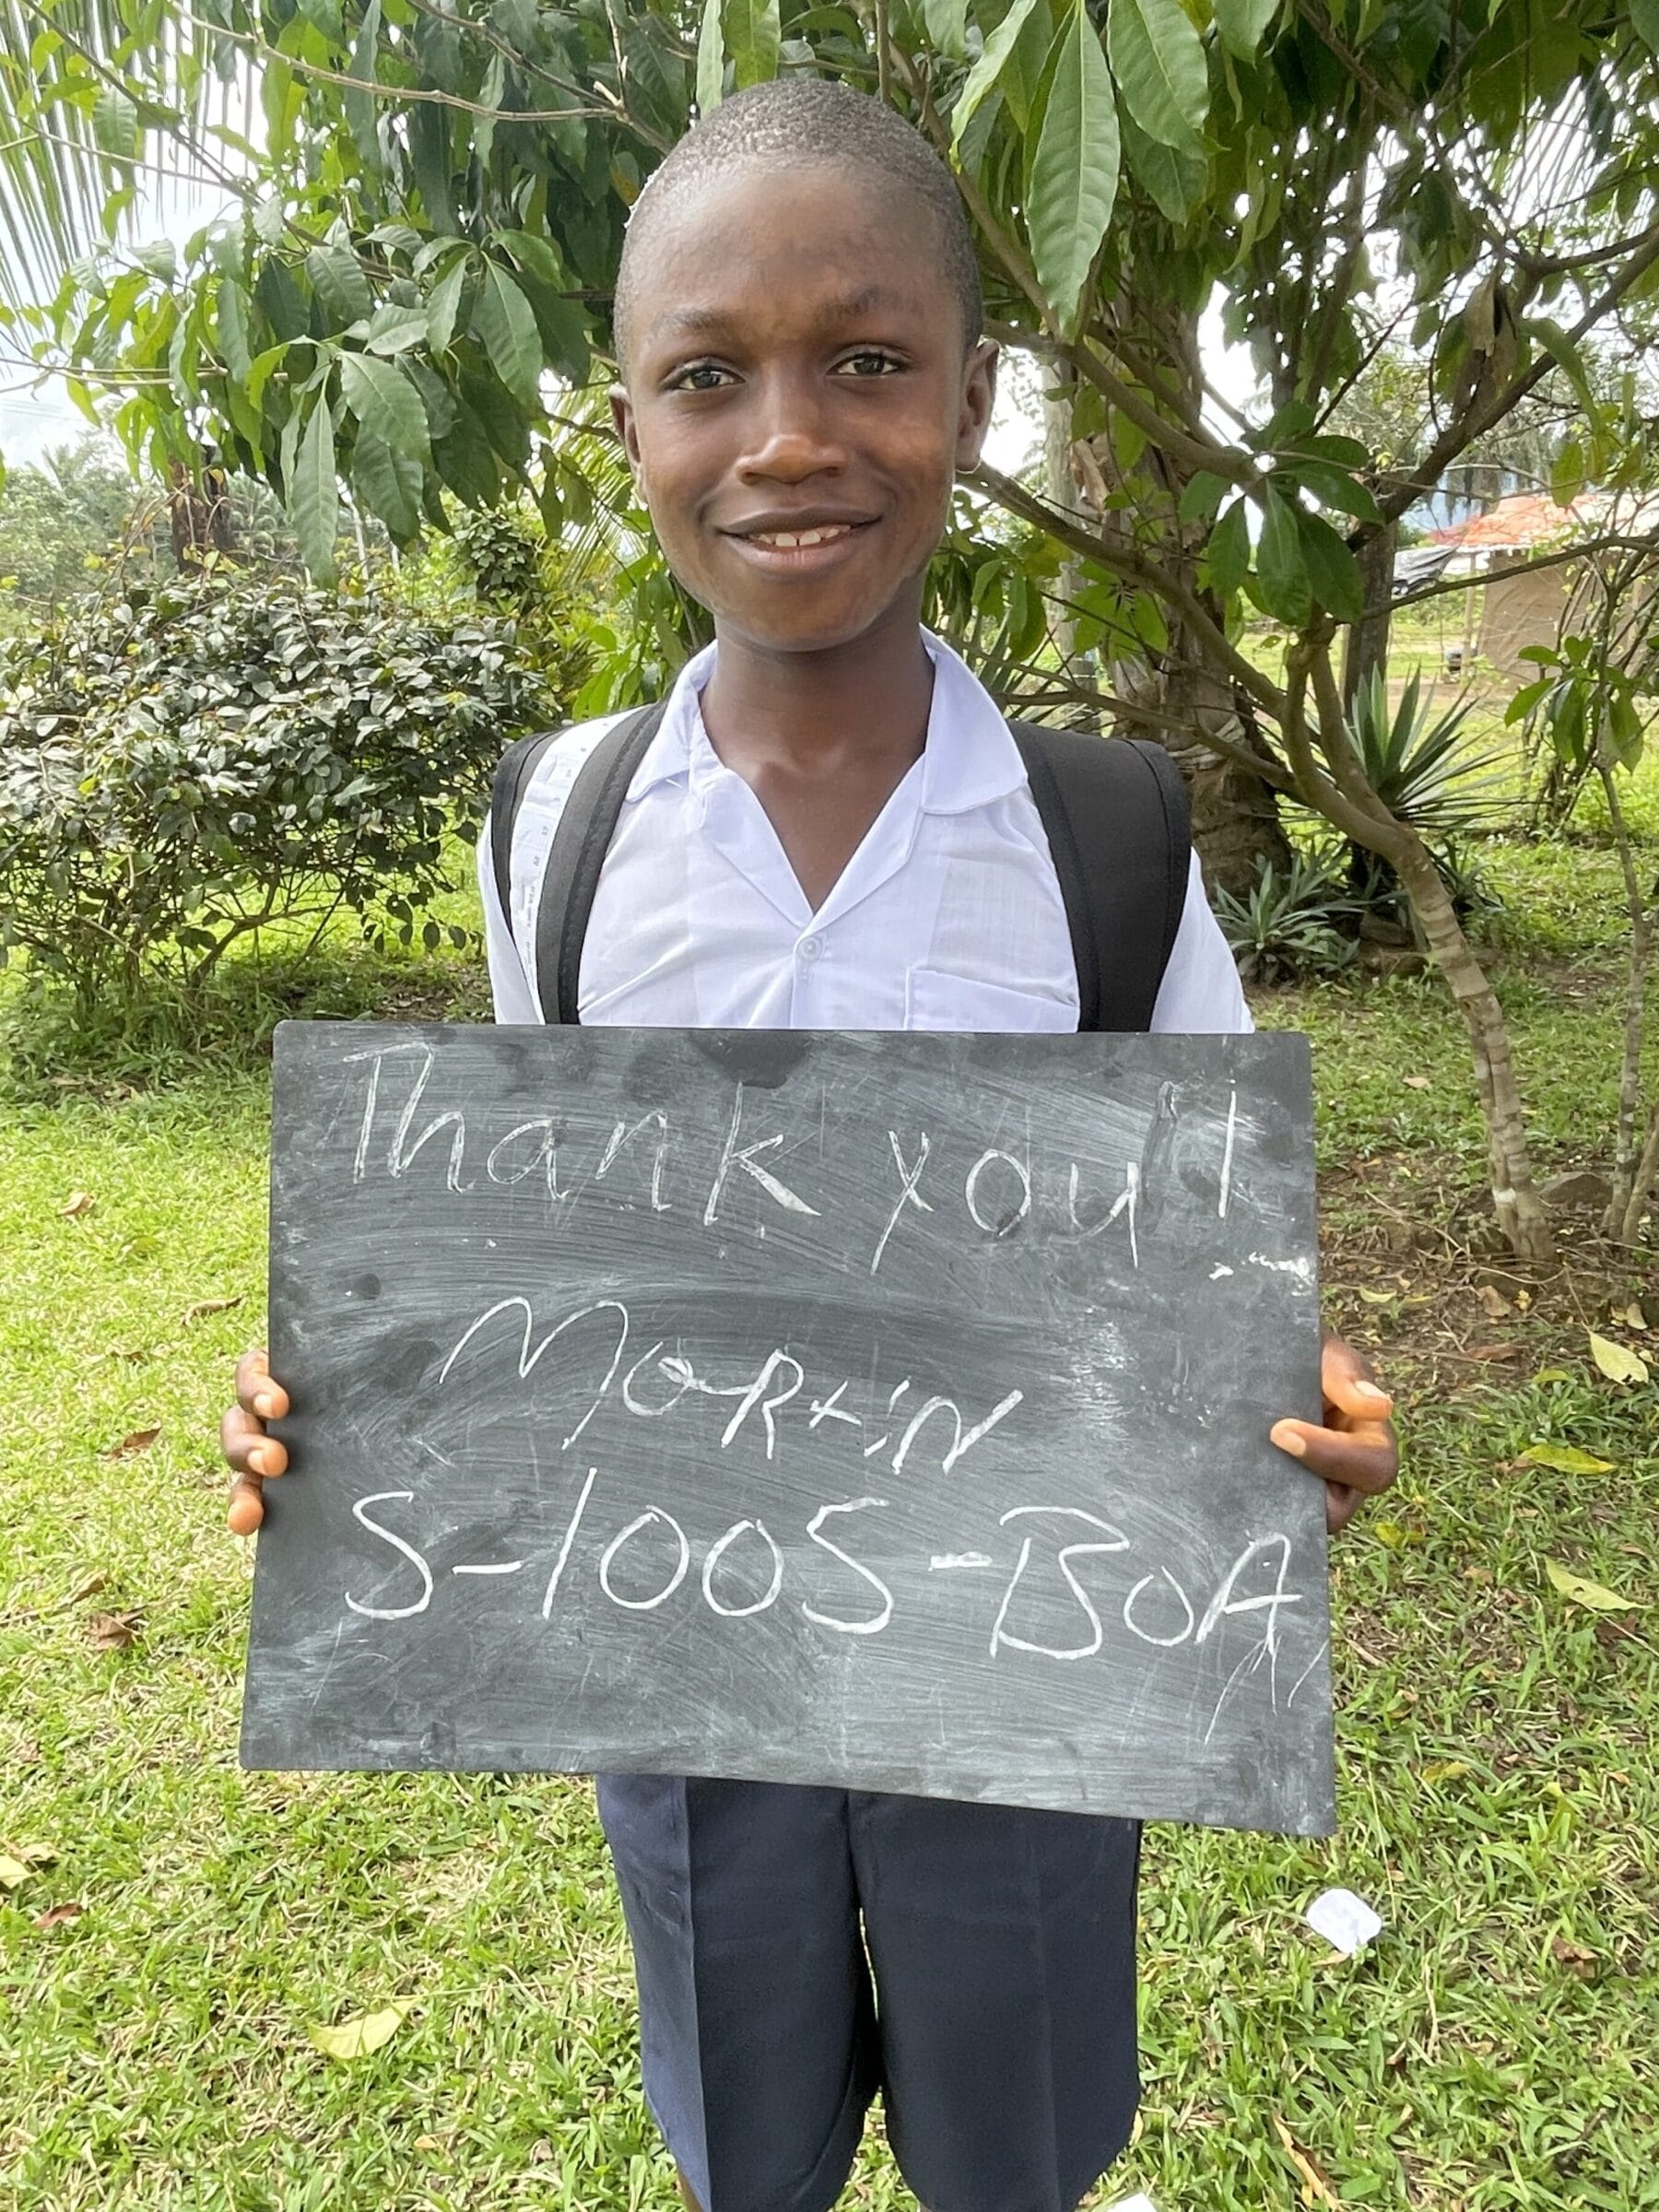 Thank you!
MORtiN
S-1005-BOA